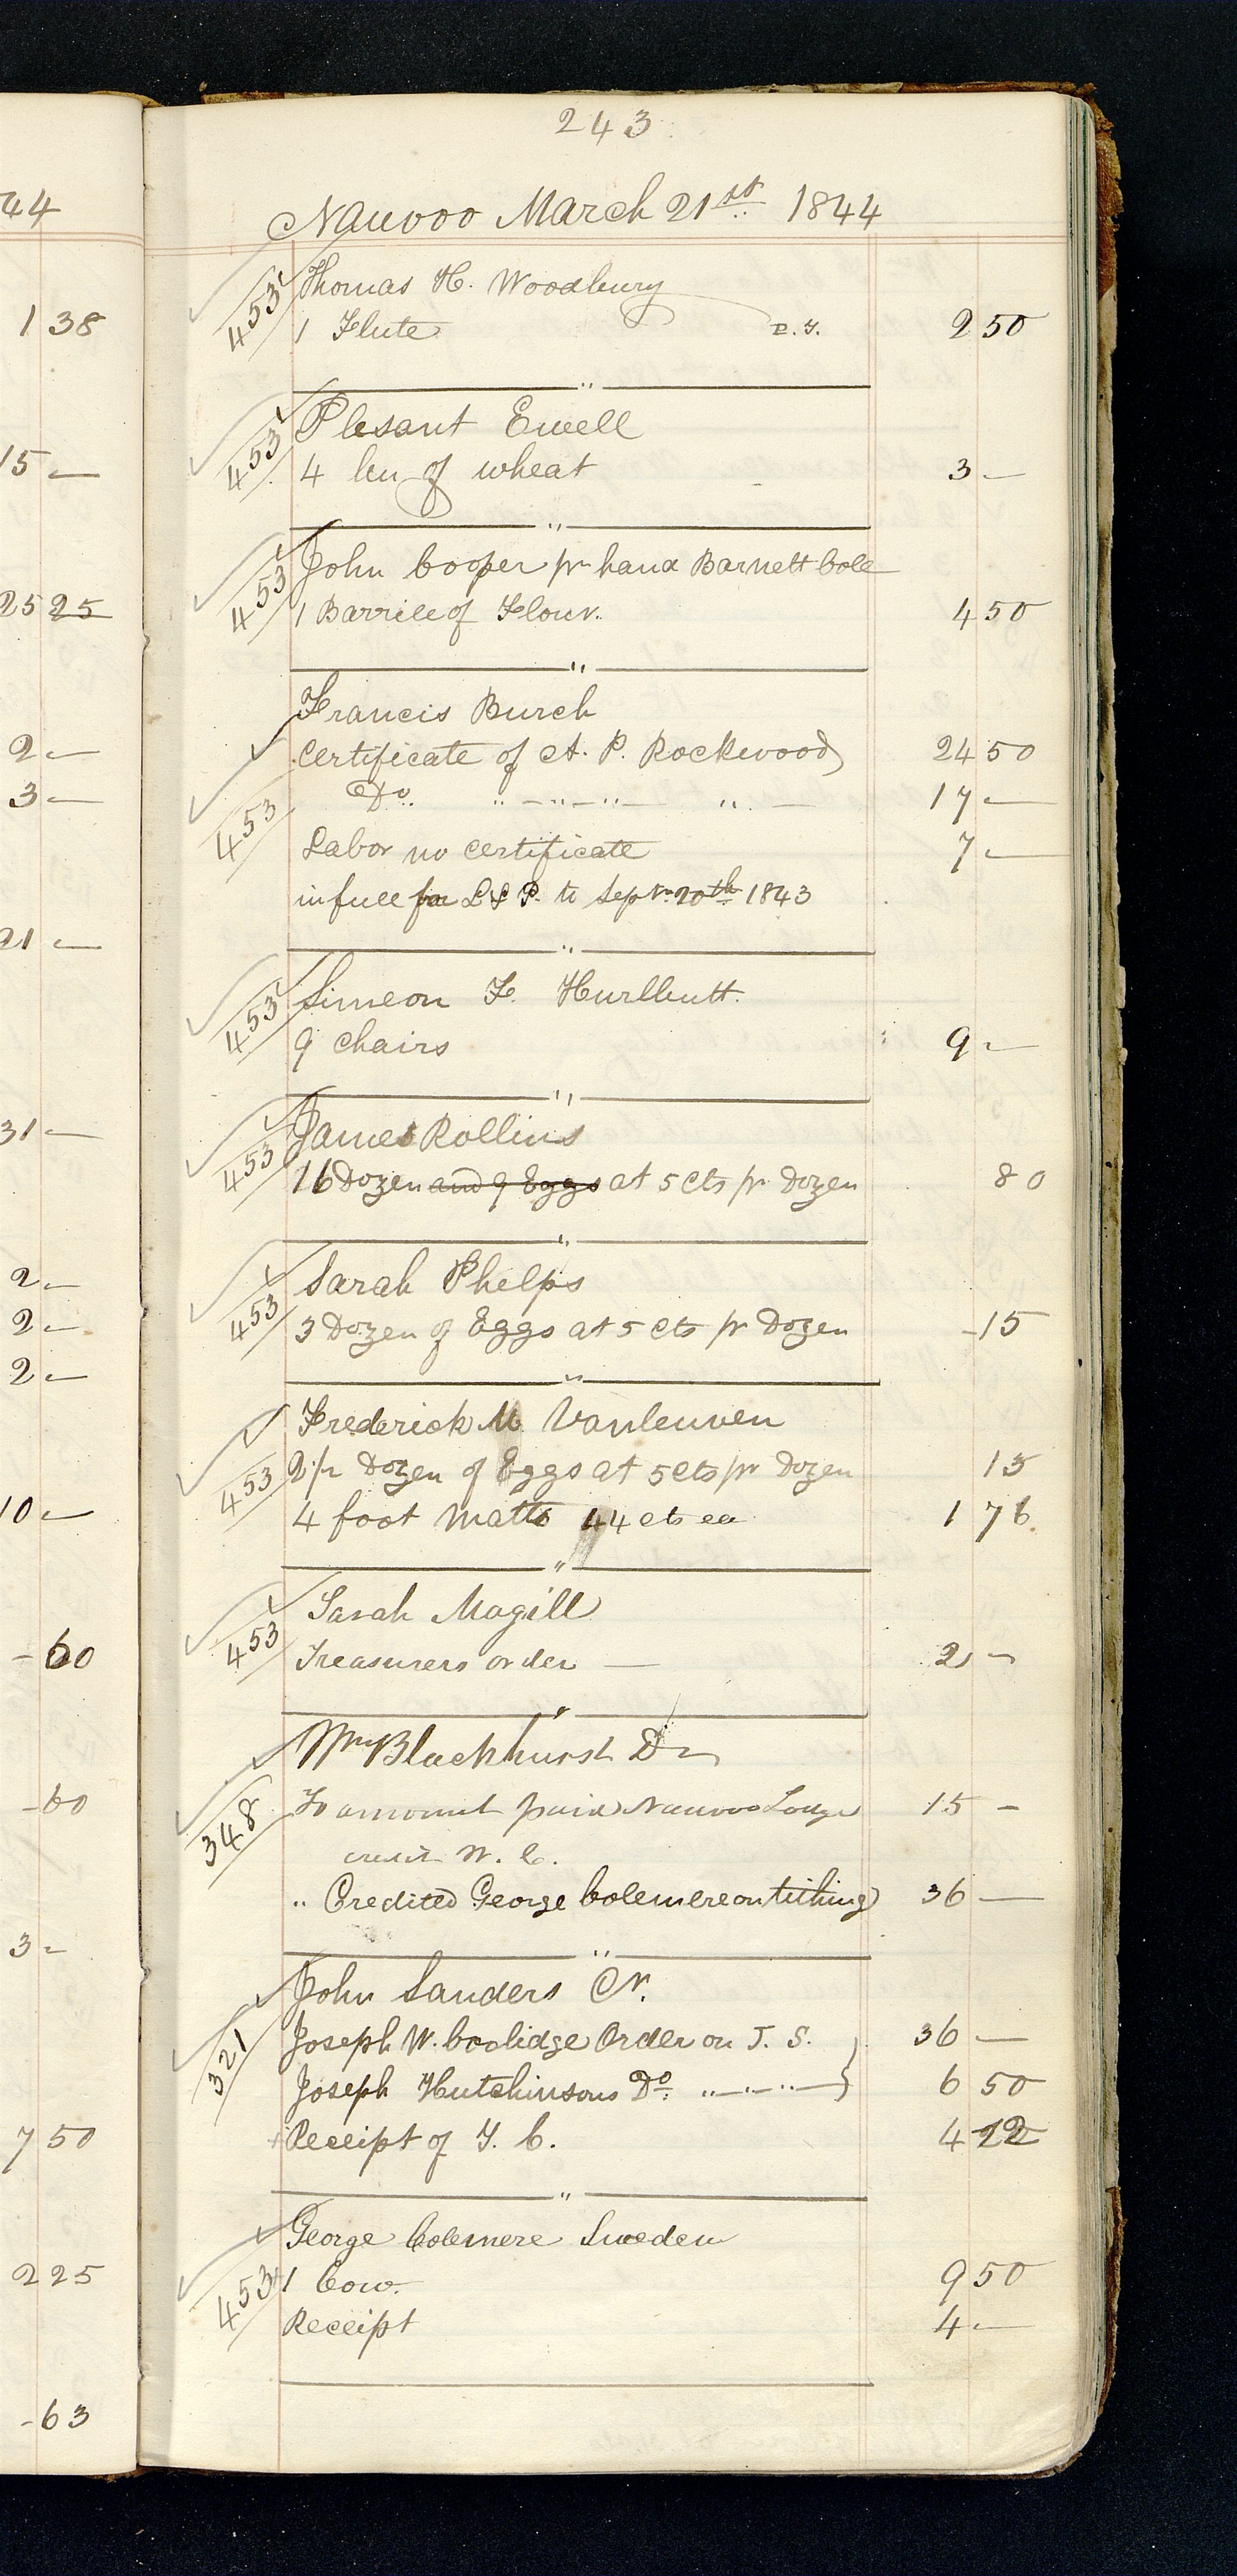 44
1 38
15 —
25 25
2 —
3 —
21 —
31 —
2 —
2 —
2 —
10 —
- 60
- 60
3 -
7 50
2 25
- 63
243
Nauvoo March 21st 1844
453 Thomas H. Woodbury
1 Flute 2 50
"
453 Plesant Ewell
4 bu of wheat 3 —
"
453 John Cooper pr hand Barnett Cole
1 Barrile of Flour. 4 50
"
Francis Burch
Certificate of A. P. Rockwood 24 50
Do. " — " — " — " — 17 —
453 Labor no certificate 7 —
in full for L & P. to Sepr. 20th 1843
"
453 Simeon F. Hurlbutt.
9 Chairs 9 —
"
453 James Rollins
16 Dozen and 9 Eggs at 5 cts pr Dozen 80
"
453 Sarah Phelps
3 Dozen of Eggs at 5 cts pr Dozen - 15
"
Frederick M Vanleuven
453 2 1/2 Dozen of Eggs at 5 cts pr Dozen 13
4 foot Matts 44 cts ea 1 76
"
453 Sarah Magill
Treasurers order — 2 —
"
Wm Blackhurst Dr
348 To amount paid Nauvoo Lodge 15 -
credit W. C.
" Credited George Colemere on tithing 36 —
"
John Sanders Cr.
321 Joseph W. Coolidge Order on T. S. 36 —
Joseph Hutchinsons Do. " — " — " — 6 50
Receipt of T. C. 4 22
"
George Colemere Sweden
453 1 Cow. 9 50
Receipt 4 —